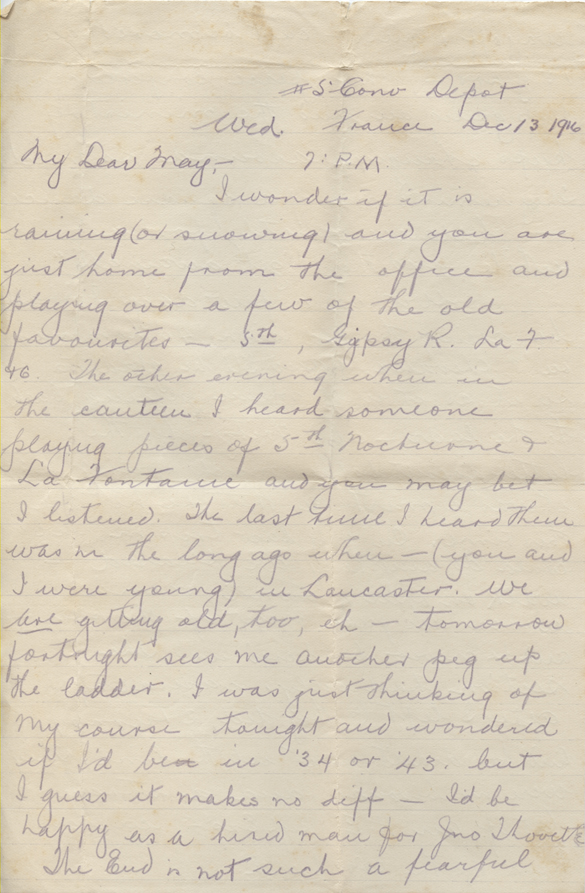 #5 Conv Depot
Wed. France Dec 13 1916
My Dear May,- 7: P.M.
I wonder if it is
raining (or snowing) and you are
just home from the office and
playing over a few of the old
favourites — 5th, Gypsy R. La F
The other evening when in
the canteen I heard someone
playing pieces of 5th Nocturne &
La Fontaine and you may bet
I listened. The last time I heard them
was in the long ago when — (you and
I were young) in Lancaster. We
are getting old, too, eh — tomorrow
fortnight sees me another peg up
the ladder. I was just thinking of
my course tonight and wondered
if I'd be in '34 or '43. but
I guess it makes no diff — I'd be
happy as a hired man for Jno
The End is not such a fearful